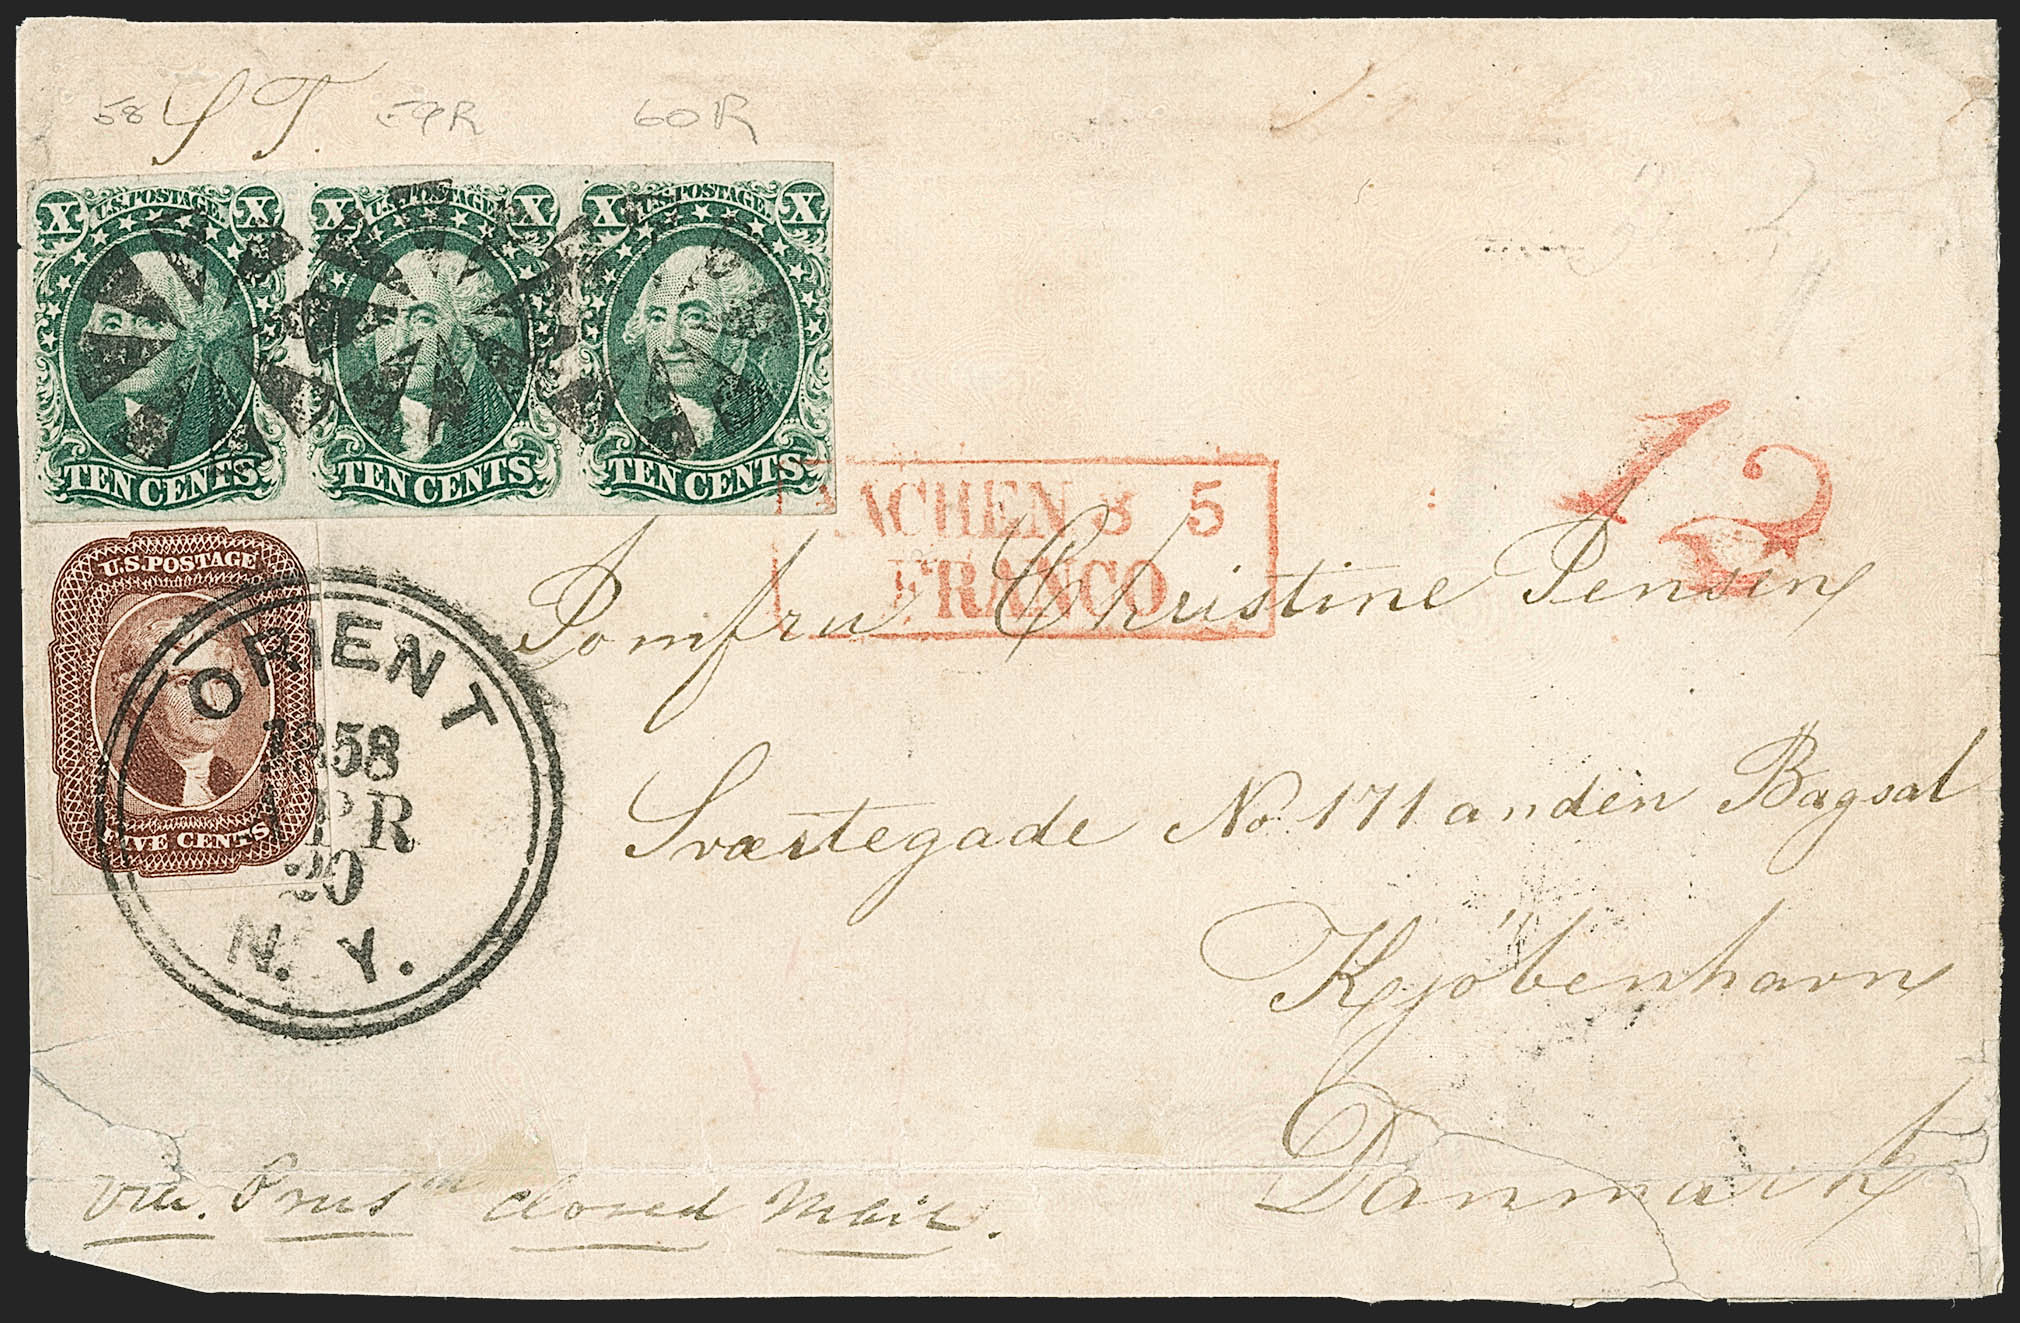 58 S T. 59R 60R
X U.S.POSTAGE. X X U.S.POSTAGE. X X U.S.POSTAGE. X
TEN CENTS TEN CENTS TEN CENTS
AACHEN 8 5
FRANCO
12
U.S.POSTAGE
FIVE CENTS
ORIENT
1858
APR
20
N. Y.
Jomfru Christine Jensen
Sværtegade No. 171 anden Bagsal
Kjöbenhavn
Danmark
via. Pruss closed Mail.